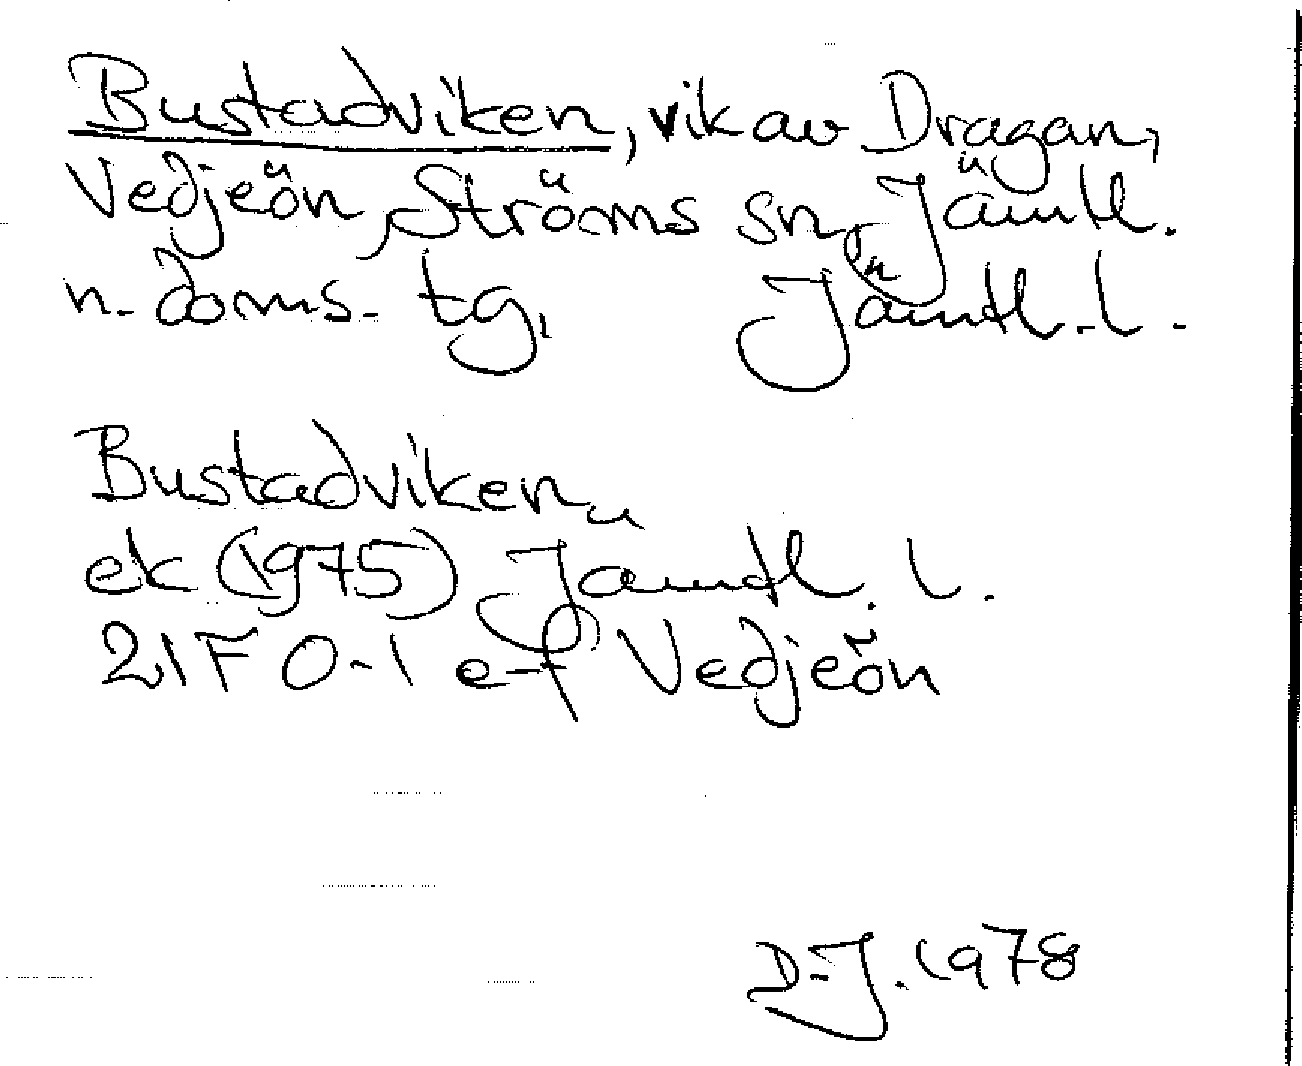 Bustadviken, vik av Dragan,
Vedjeön, Ströms sn, Jämtl.
n. doms. tg, Jämtl. l.
Bustadviken
ek (1975) Jämtl. l.
21F 0-1 e-f Vedjeön
D-J. 1978